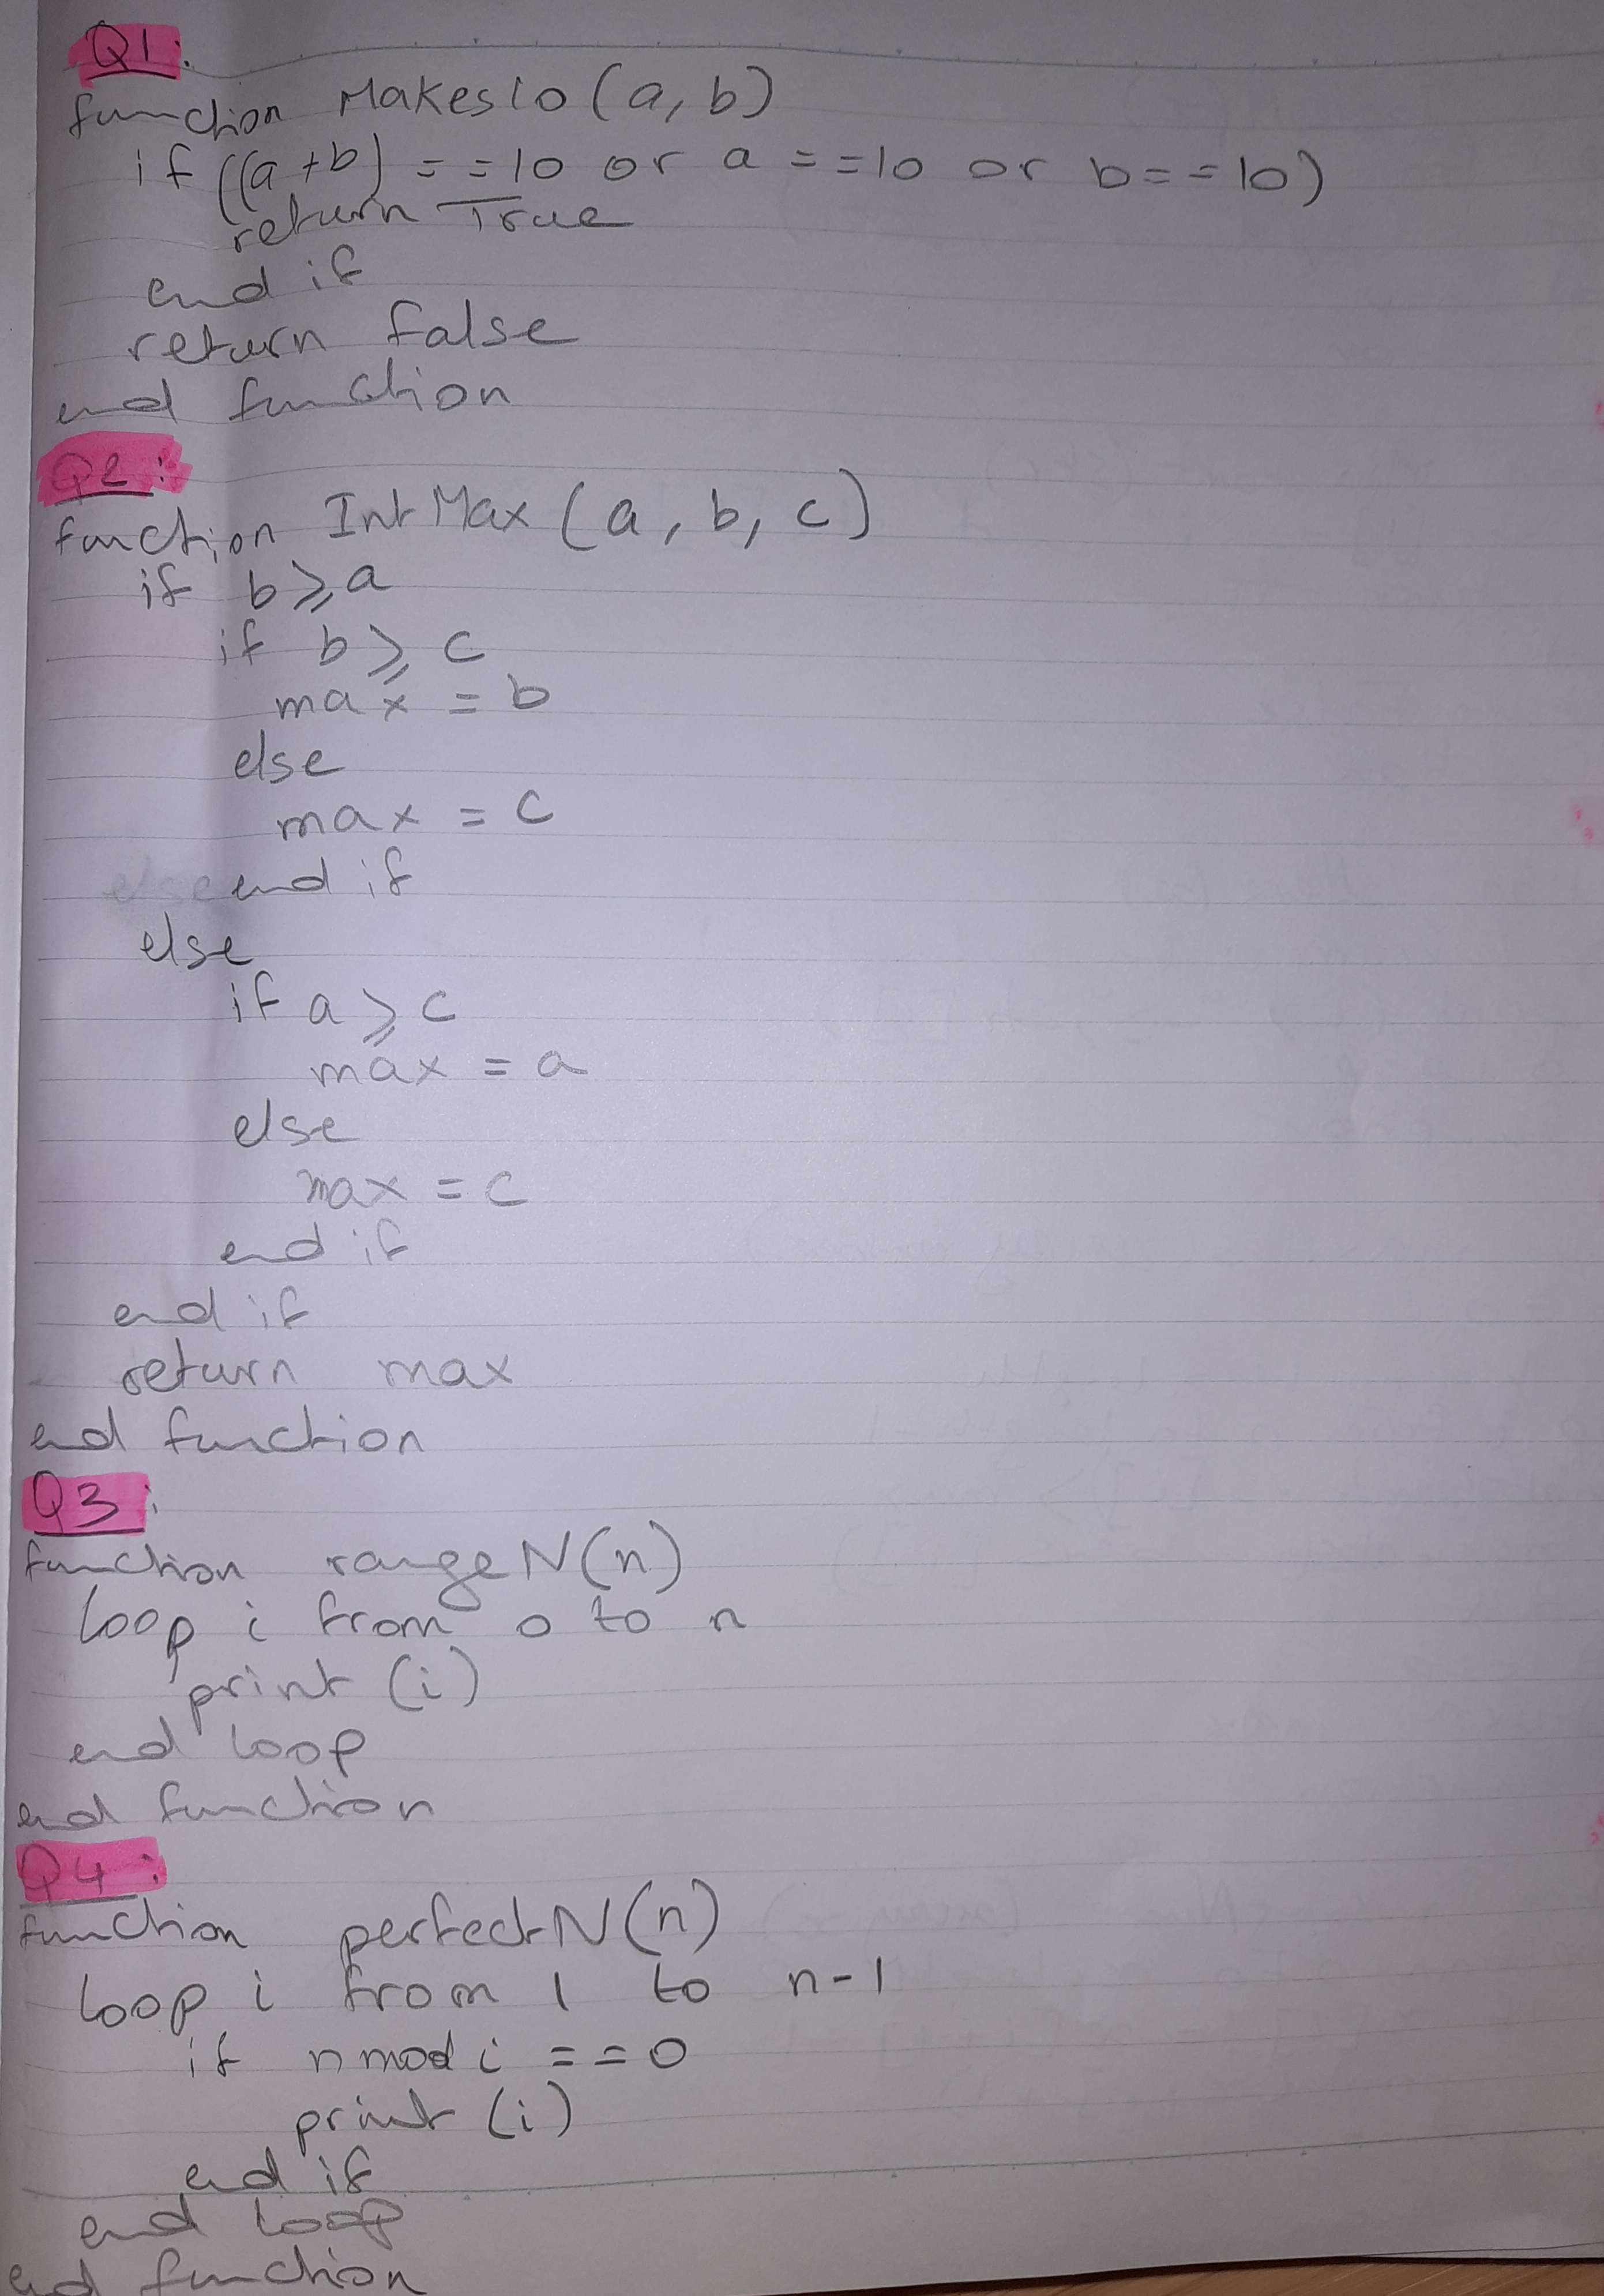 Q1:
function Makes10 (a, b)
if ((a+b) == 10 or a == 10 or b == 10)
return True
end if
return false
end function
Q2:
function IntMax (a, b, c)
if b ⩾ a
if b ⩾ c
max = b
else
max = c
end if
else
if a ⩾ c
max = a
else
max = c
end if
end if
return max
end function
Q3:
function rangeN(n)
loop i from 0 to n
print (i)
end loop
end function
Q4:
function perfectN(n)
loop i from 1 to n-1
if n mod i == 0
print (i)
end if
end loop
end function